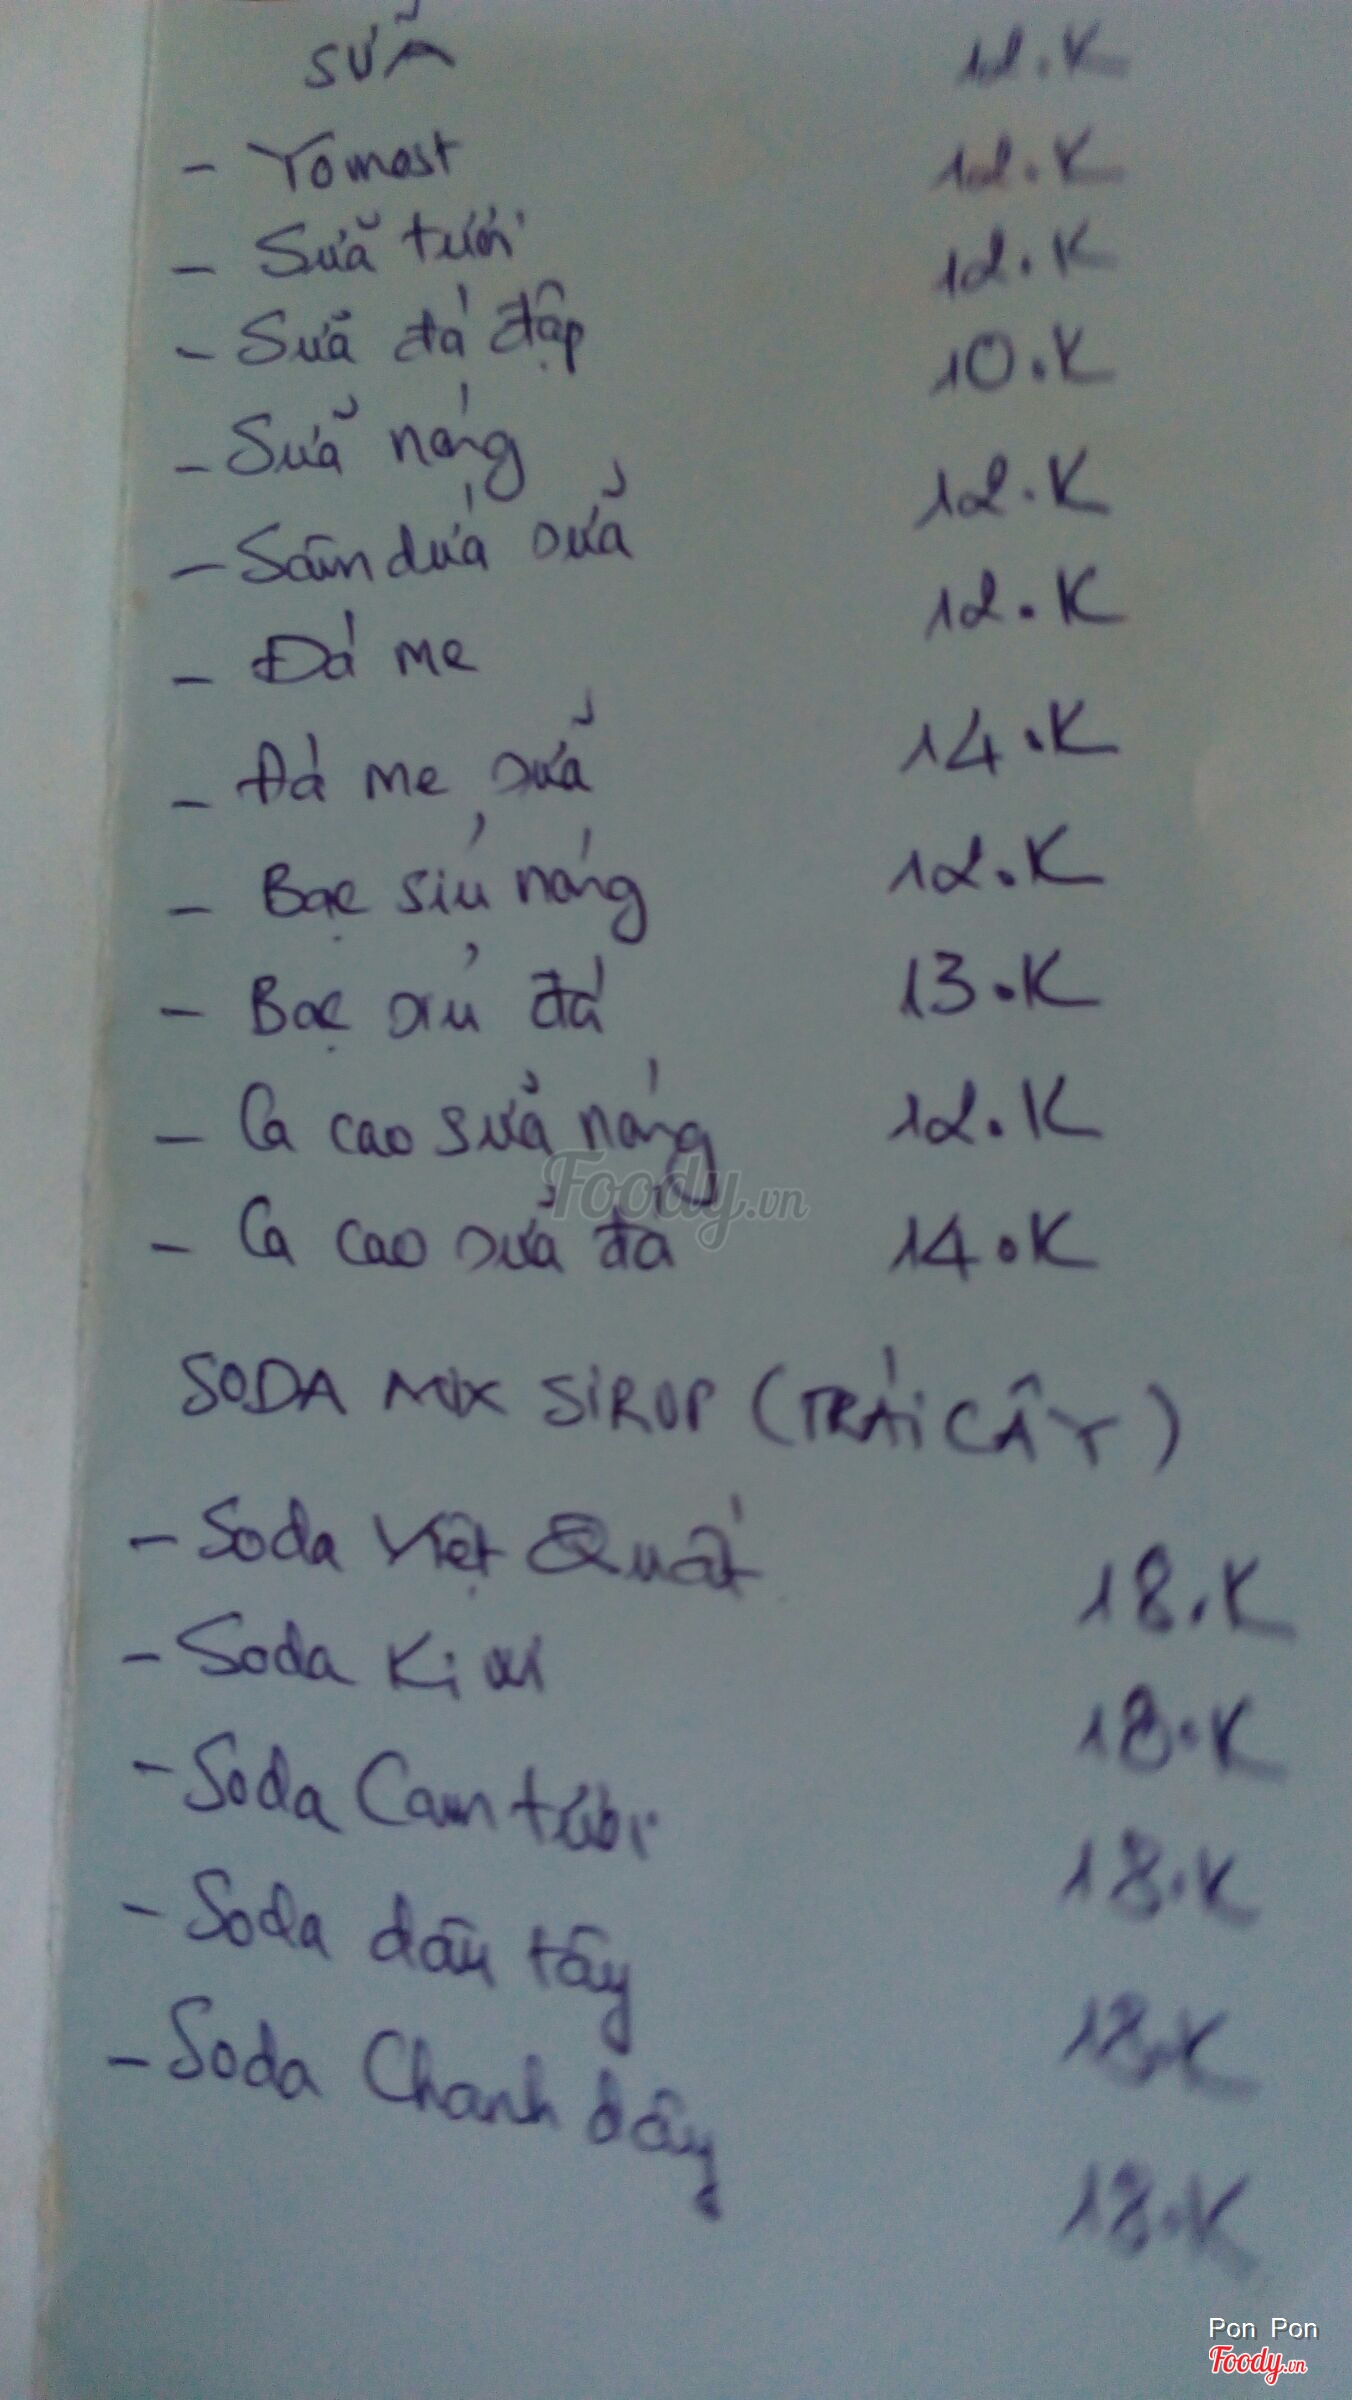 SỮA 12.K
- Yomost 12.K
- Sữa tươi 12.K
- Sữa đá đập 10.K
- Sữa nóng 12.K
- Sâm dứa sữa 12.K
- Đá me 14.K
- Đá me sữa 12.K
- Bạc sỉu nóng 13.K
- Bạc sỉu đá 12.K
- Ca cao sữa nóng 14.K
- Ca cao sữa đá
Foody.vn
SODA MIX SIRUP (TRÁI CÂY)
- Soda Việt Quất 18.K
- Soda Kiwi 18.K
- Soda Cam tươi 18.K
- Soda dâu tây 18.K
- Soda Chanh dây 18.K
Pon Pon
Foody.vn